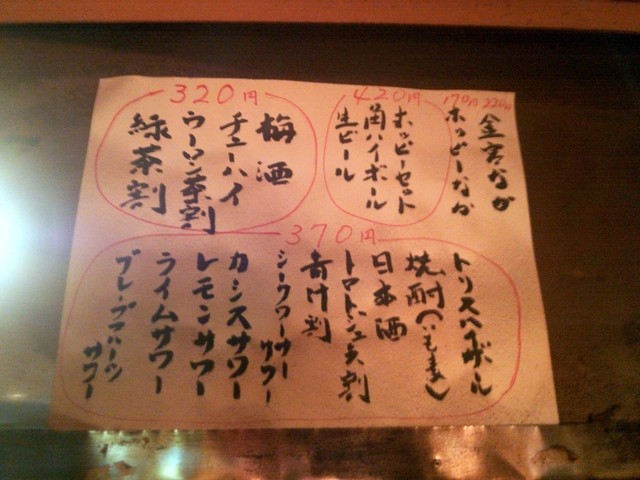 170円 220円
金宮なか
ホッピーなか
420円
ホッピーセット
角ハイボール
生ビール
320円
梅酒
チューハイ
ウーロン茶割
緑茶割
370円
トリスハイボール
焼酎(いも・麦)
日本酒
トマトジュース割
青汁割
シークワーサーサワー
カシスサワー
レモンサワー
ライムサワー
グレープフルーツサワー